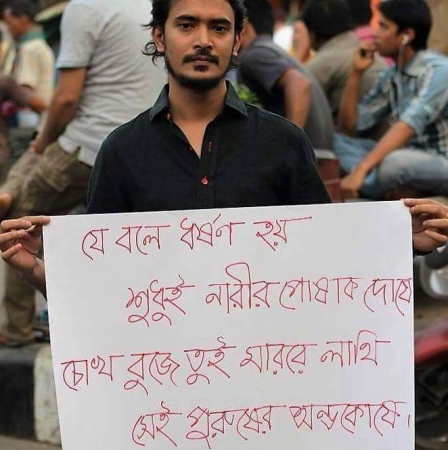 যে বলে ধর্ষণ হয়
শুধুই নারীর পোষাক দোষে
চোখ বুজে তুই মাররে লাথি
সেই পুরুষের অন্ডকোষে।